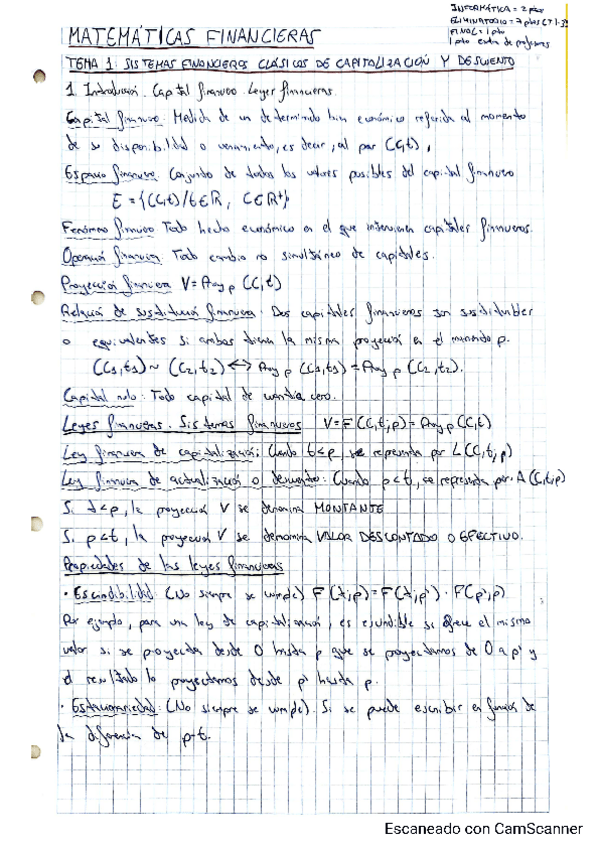 INFORMÁTICA = 2 ptos
ELIMINATORIO = 7 ptos (T1-3)
FINAL = 1 pto
1 pto extra de profesores
MATEMÁTICAS FINANCIERAS
TEMA 1: SISTEMAS FINANCIEROS CLÁSICOS DE CAPITALIZACIÓN Y DESCUENTO
1 Introducción. Capital financiero. Leyes financieras.
Capital financiero: Medida de un determinado bien económico referida al momento
de su disponibilidad o vencimiento, es decir, al par (C,t).
Espacio financiero: Conjunto de todos los valores posibles del capital financiero
E = {(C,t)/t∈R, C∈R⁺}
Fenómeno financiero: Todo hecho económico en el que intervienen capitales financieros.
Operación financiera: Todo cambio no simultáneo de capitales.
Proyección financiera V = Proy p (C,t)
Relación de sustitución financiera: Dos capitales financieros son sustituibles
o equivalentes si ambos tienen la misma proyección en el momento p.
(C1,t1) ~ (C2,t2) <-> Proy p (C1,t1) = Proy p (C2,t2).
Capital nulo: Todo capital de cuantía cero.
Leyes financieras. Sistemas financieros V = F(C,t;p) = Proy p (C,t)
Ley financiera de capitalización: Cuando t<p, se representa por L(C,t;p)
Ley financiera de actualización o descuento: Cuando p<t, se representa por A(C,t;p)
Si t<p, la proyección V se denomina MONTANTE
Si p<t, la proyección V se denomina VALOR DESCONTADO O EFECTIVO.
Propiedades de las leyes financieras
· Escindibilidad: (No siempre se cumple) F(t;p) = F(t;p') · F(p';p)
Por ejemplo, para una ley de capitalización, es escindible si ofrece el mismo
valor si se proyecta desde 0 hasta p que si proyectamos de 0 a p' y
el resultado lo proyectamos desde p' hasta p.
· Estacionariedad: (No siempre se cumple). Si se puede escribir en función de
la diferencia de p-t.
Escaneado con CamScanner